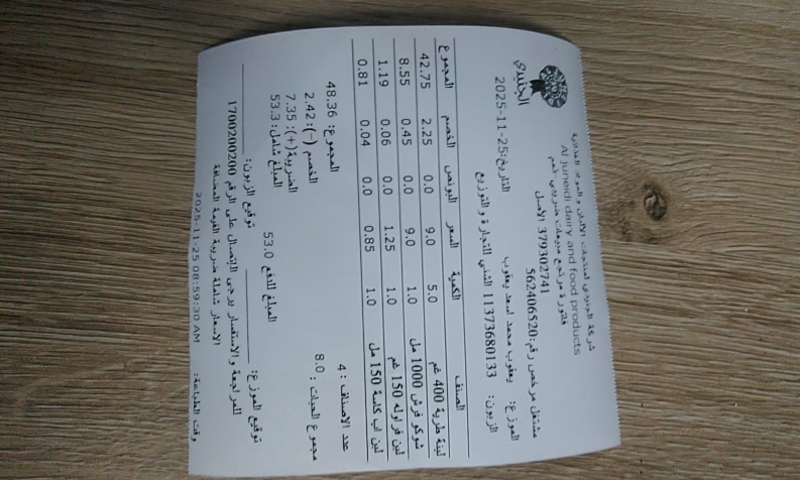 الجنيدي
شركة الجنيدي لمنتجات الألبان و المواد الغذائية
Al Juneidi dairy and food products
فاتورة مرتجع مبيعات ضريبي-ذمم
379302741 الأصل
مشتغل مرخص رقم:562406520
التاريخ:25-11-2025
الموزع: يعقوب محمد اسعد يعقوب
الزبون: 11373680133 الشني للتجارة والتوزيع
الصنف الكمية السعر البونص الخصم المجموع
لبنة طرية 400 غم 5.0 9.0 0.0 2.25 42.75
شوكو فرش 1000 مل 1.0 9.0 0.0 0.45 8.55
لبن فراوله 150 غم 1.0 1.25 0.0 0.06 1.19
لبن اب كاسة 150 مل 1.0 0.85 0.0 0.04 0.81
عدد الاصناف : 4
المجموع: 48.36
مجموع الحبات : 8.0
الخصم (-): 2.42
الضريبة(+): 7.35
المبلغ شامل: 53.3
المبلغ للدفع 53.0
توقيع الموزع: توقيع الزبون:
للمراجعة والاستفسار يرجى الإتصال على الرقم 1700200200
الاسعار شاملة ضريبة القيمة المضافة
وقت الطباعة: 2025-11-25 08:59:30 AM